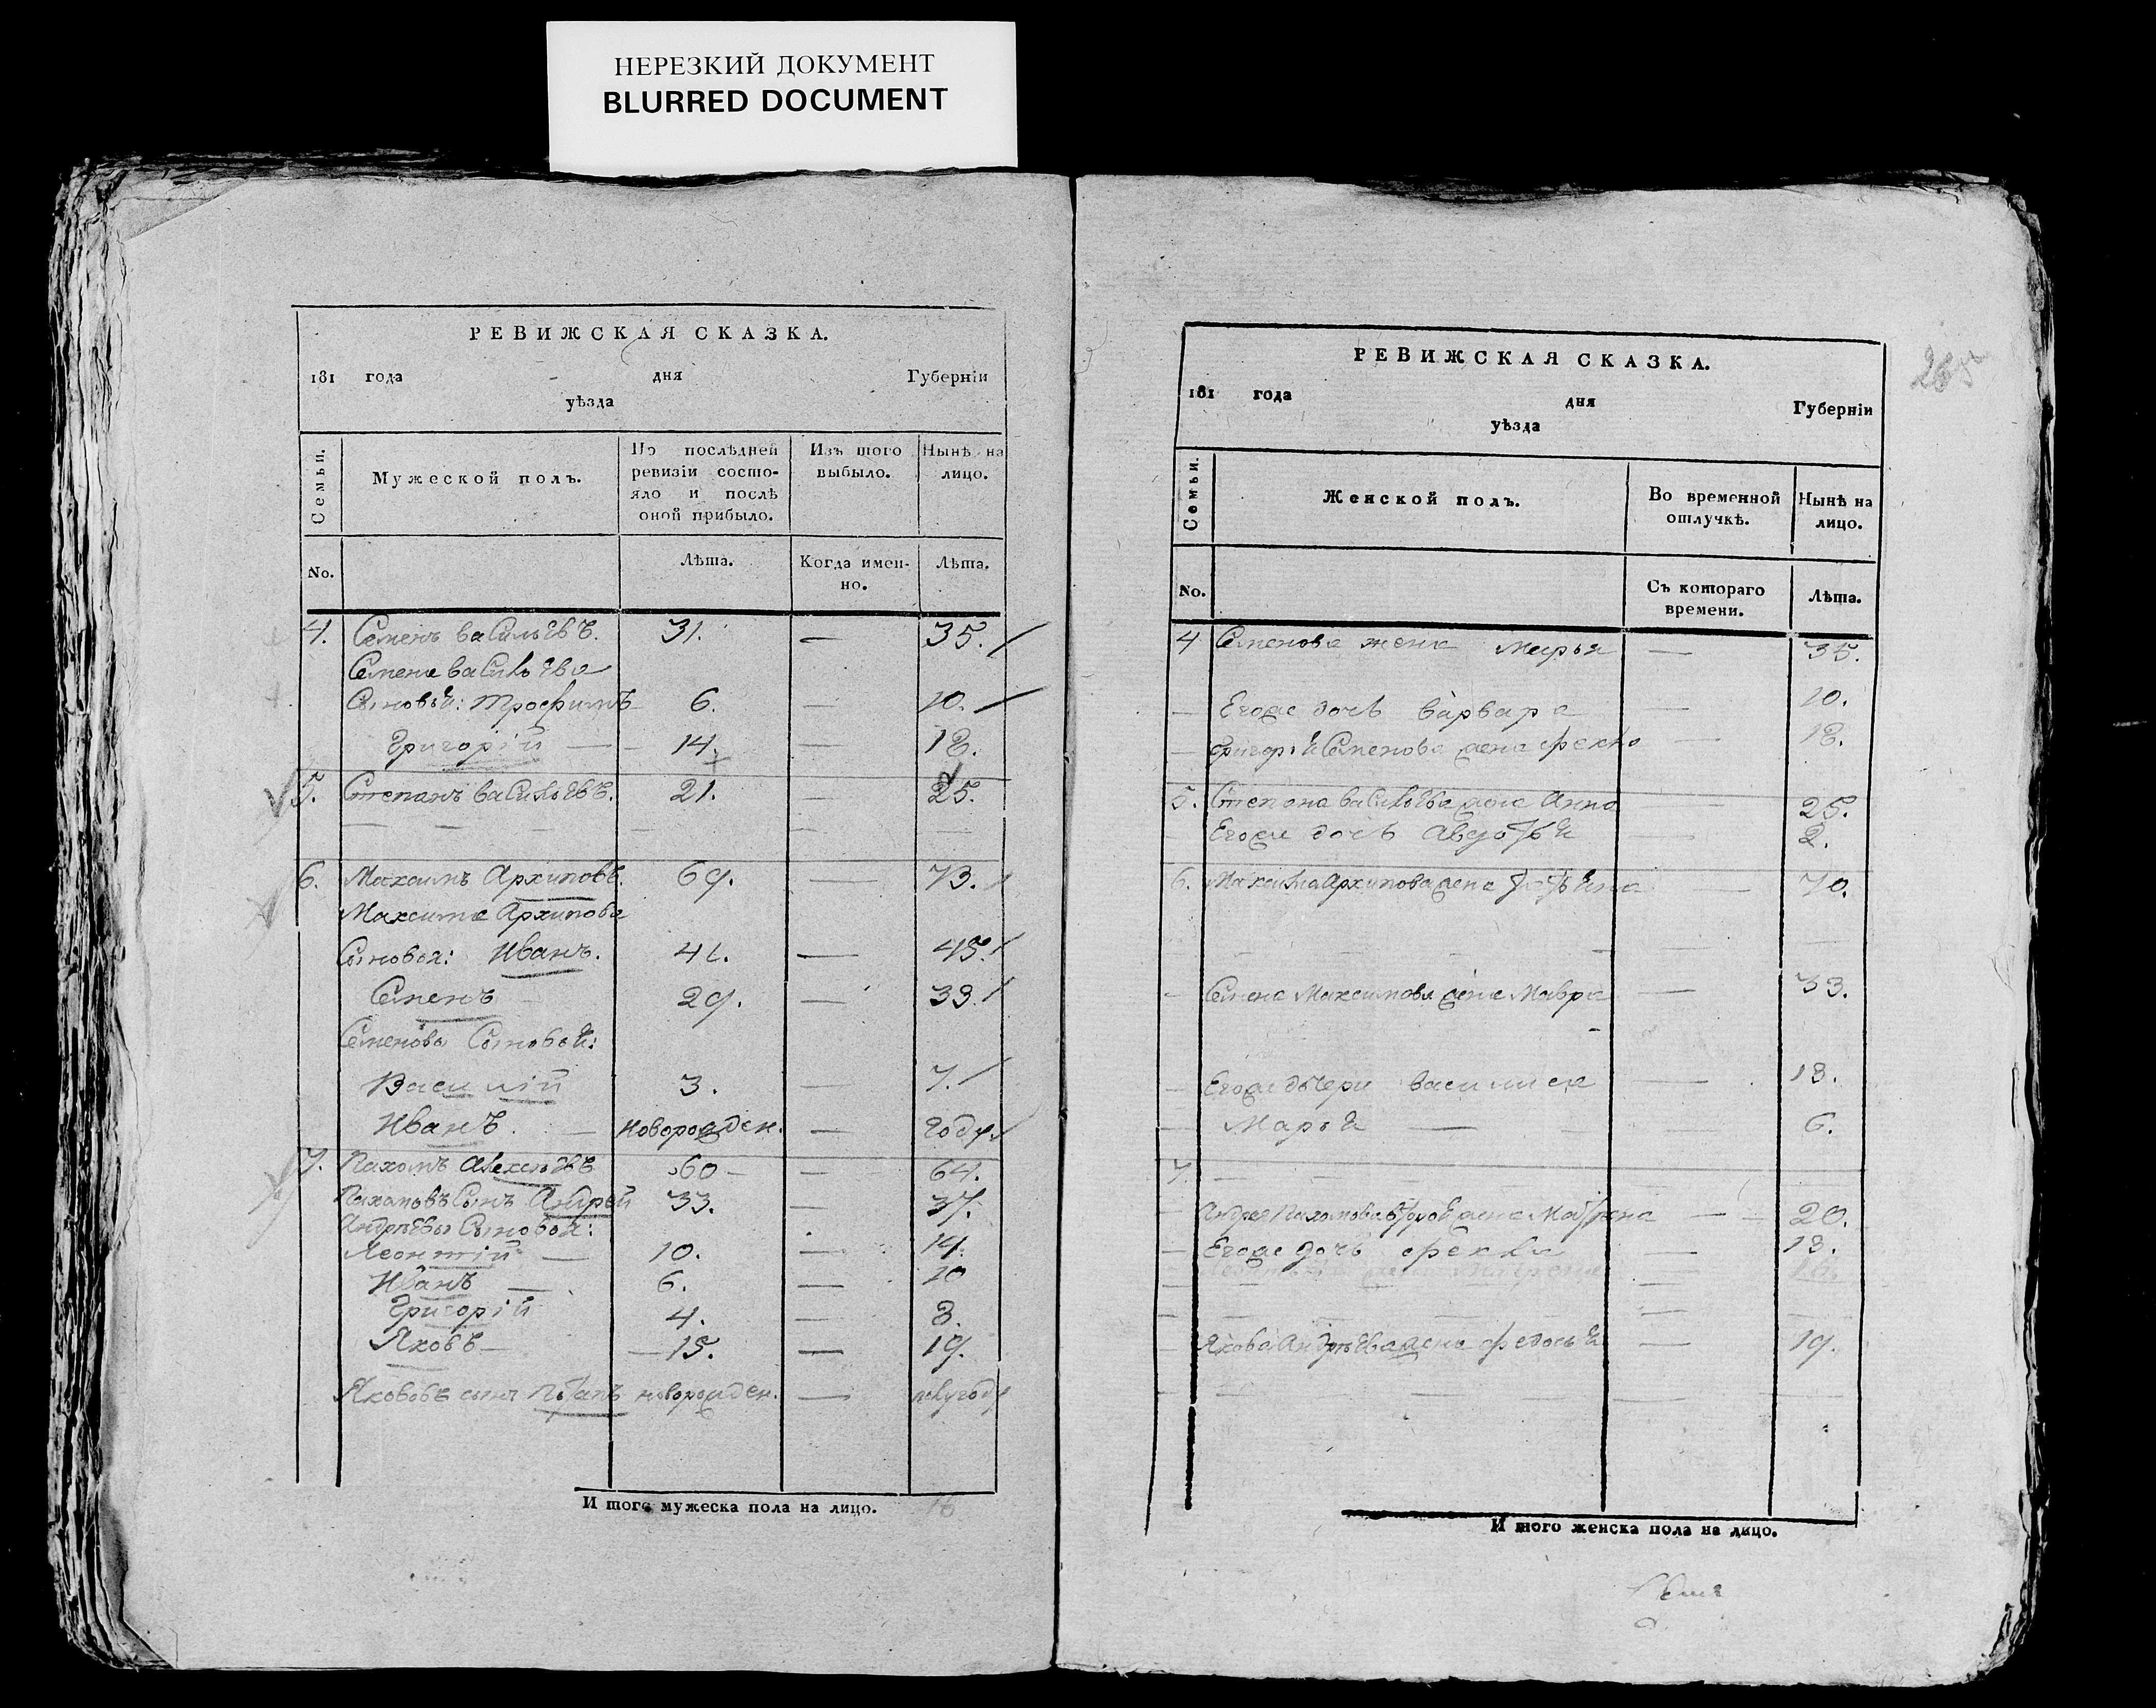 НЕРЕЗКИЙ ДОКУМЕНТ
BLURRED DOCUMENT
РЕВИЖСКАЯ СКАЗКА.
181 года дня Губернїи
уѣзда
Семьи. Мужеской полъ. По послѣдней ревизїи состояло и послѣ оной прибыло. Изъ того выбыло. Нынѣ на лицо.
No. Лѣта. Когда именно. Лѣта.
4. Семенъ васильевъ. 31. — 35.
Семена васильева
Сыновья: трофимъ 6. — 10.
Григорій — 14. — 18.
5. Степанъ васильевъ. 21. — 25.
6. Максимъ Архиповъ. 69. — 73.
Максима Архипова
Сыновья: Иванъ. 41. — 45.
Семенъ 29. — 33.
Семенова Сыновья:
Василій 3. — 7.
Иванъ. — новорожден. — году
7. Пахомъ Алексѣевъ 60 — 64.
Пахомовъ Сынъ Андрей 33. — 37.
Андрѣевы Сыновья:
Леонтій — 10. — 14.
Иванъ — 6. — 10
Григорій 4. — 8.
Яковъ — 15. — 19.
Яковово сынъ Потапъ новорожден. — полугоду
И того мужеска пола на лицо. 16
РЕВИЖСКАЯ СКАЗКА.
181 года дня Губернїи
уѣзда
Семьи. Женской полъ. Во временной отлучкѣ. Нынѣ на лицо.
No. Съ котораго времени. Лѣта.
4 Семенова жена марья — 35.
— Егоже дочь варвара — 10.
— григорія Семенова жена фекла — 18.
5. Степана васильева жена Анна — 25.
— Егоже дочь Авдотья — 2.
6. Максима Архипова жена — 70.
— Семена Максимова жена Мавра — 33.
— Егоже дочери василиса — 13.
— Марья — 6.
7.
— Андрея Пахомова вторая жена Матрена — 20.
— Егоже дочь фекла — 13.
— Якова Андрѣева жена федосья — 19.
И того женска пола на лицо.